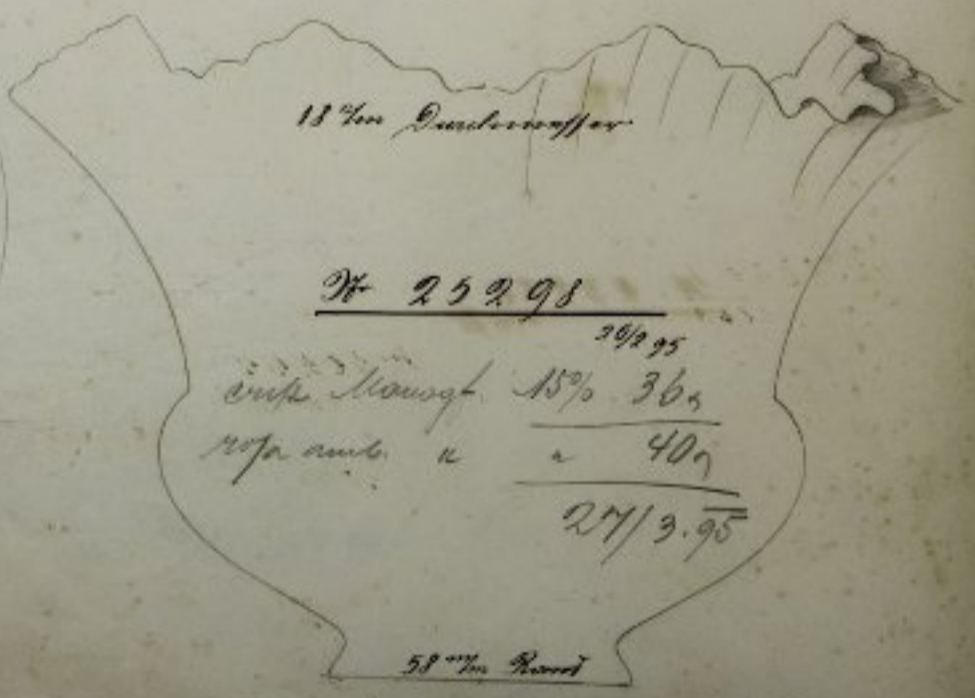 18 c/m Durchmesser
Nr 25298
26/2 95
15% 36
rosa amb. " " 40
27/3.95
58 m/m Rand